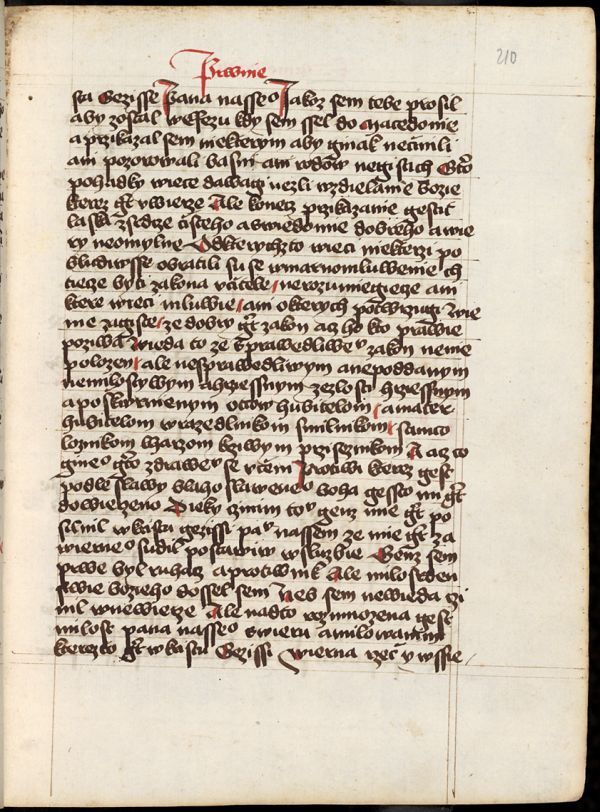 210
Prwnie
sta Gezisse Pana nasseo Jakoz sem tebe prosil
aby zostal w efezu kdy sem ssel do Macedonie
a przikazal sem niekterym aby ginak neczinili
ani pozorowali basni ani rodow negistich Gto
pohadky wiece dawagi nezli wzdielanie bozie
kterez gt v wierze Ale konecz przikazanie gestit
laska z srdcze cisteho a swiedomie dobreho a wie
ry neomylne Od kterychzto wieci niekterzi po
bludiwsse obratili su se w marnomluwenie ch
tiecze byti zakona vcitele nerozumiegicze ani
ktere wieci mluwie ani o kterych potwrzugi Wie
me zagiste ze dobry gt zakon acz ho kto prawie
poziwa Wieda to ze sprawedliwev zakon nenie
polozen ale nesprawedliwym a nepoddanym
nemilostywym a hrziessnym zezlosti hrziessnym
a poskwrnenym otcow hubitelom a mater
hubitelom wrazedlnikom smilnikom samczo
loznikom lharzom krziwym prziseznikom A acz to
gineo gto zdrawev se vcem Protiwi kterez gest
podle slawy blaho slaweneo boha gessto mi gt
dowierzeno Dieky czinim tov genz mie gt po
silnil w kristu gezissi pav nassem ze mie gt za
wierneo sudil postawiw w sluzbie Genz sem
prwe byl ruhacz a protiwnik Ale milosrden
stwie bozieho dossel sem Neb sem newieda czi
nil w newierze Ale nadto rozmnozena gest
milost pana nasseo s wieru a milowanim
kterezto gt w kristu Gezissi Wierna rzecz y wssie